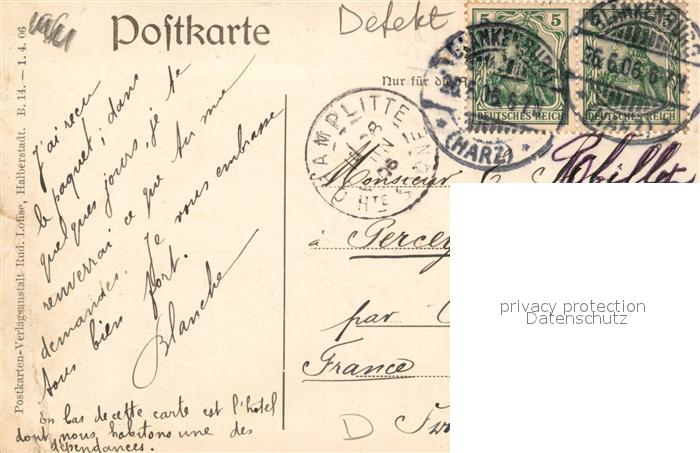 Postkarte
Defekt
Nur für die A
Postkarten-Verlagsanstalt Rud. Lohse, Halberstadt. B. 14. — 1. 4. 06
J'ai reçu
le paquet; dans
quelques jours, je te
renverrai ce que tu me
demandes. Je vous embrasse
tous bien fort.
Blanche
en bas de cette carte est l'hotel
dont nous habitons une des
dépendances.
5
5
DEUTSCHES REICH
DEUTSCHES REICH
BLANKENBURG
(HARZ)
BLANKENBURG
CHAMPLITTE
Hte
Monsieur
à Percey
par
France
D
privacy protection
Datenschutz